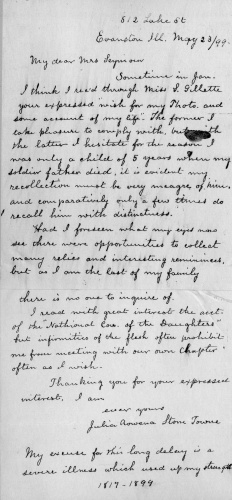 812 Lake St
Evanston Ill. May 23/99.
My dear Mrs Seymour
Sometime in Jan.
I think I rec'd through Miss L Gillette
your expressed wish for my Photo. and
some account of my life. The former I
take pleasure to comply with, but
the latter I hesitate for the reason I
was only a child of 5 years when my
soldier father died, it is evident my
recollection must be very meagre of him,
and comparatively only a few times do
recall him with distinctness.
Had I foreseen what my eyes now
see there were opportunities to collect
many relics and interesting remininces,
but as I am the last of my family
there is no one to inquire of.
I read with great interest the acct.
of the "National Con. of the Daughters"
but infirmities of the flesh often prohibit
me from meeting with our own Chapter
often as I wish.
Thanking you for your expressed
interest, I am
ever yours
Julia Rowena Towne
My excuse for this long delay is a
severe illness which used up my strength
1817-1899